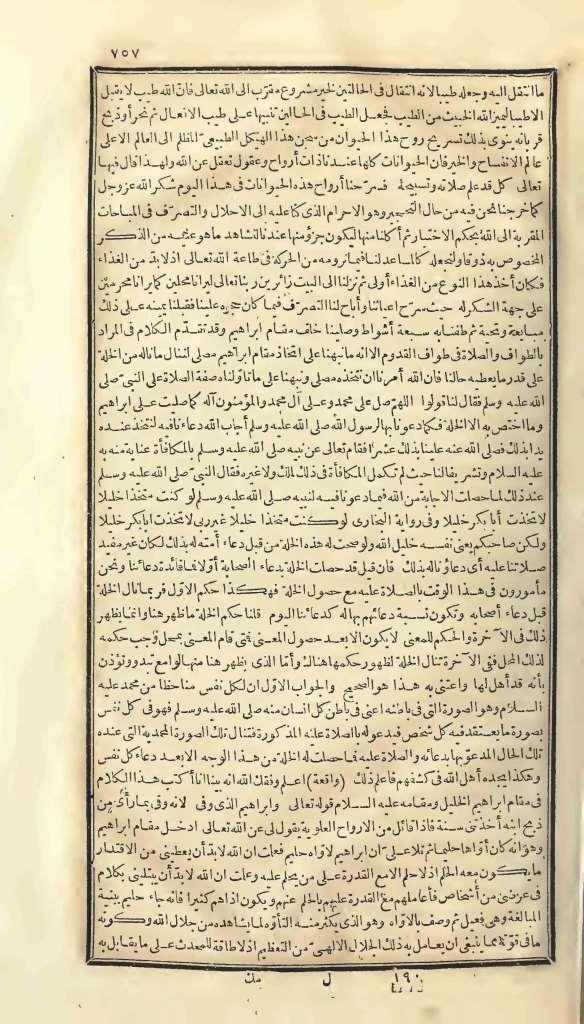 ٧٥٧
ما انتقل اليه وجعله طيبا لانه انتقال فى الحالتين لخير مشروع مقرّب الى الله تعالى فانّ الله طيب لا يقبل
الا طيبا ليميز الله الخبيث من الطيب فجعل الطيب فى الحالين تنبيها على طيب الافعال ثم نحر أو ذبح
قربانه ينوى بذلك تسريح روح هذا الحيوان من سجن هذا الهيكل الطبيعىّ المظلم الى العالم الاعلى
عالم الانفساح والخير فان الحيوانات كلها عندنا ذات أرواح وعقول تعقل عن الله ولهذا قال فيها
تعالى كل قد علم صلاته وتسبيحه فسرّحنا أرواح هذه الحيوانات فى هذا اليوم شكر الله عز وجل
كما خرجنا نحن فيه من حال التحجير وهو الاحرام الذى كنا عليه الى الاحلال والتصرّف فى المباحات
المقربة الى الله بحكم الاختيار ثم أكلنا منها ليكون جزؤ منها عندنا لنشاهد ما هو عليه من الذكر
المخصوص به ذوقا ولنجعله كالمساعد لنا فيما نرومه من الحركة فى طاعة الله تعالى اذ لا بدّ من الغذاء
فكان أخذ هذا النوع من الغذاء أولى ثم نزلنا الى البيت زائرين ربنا تعالى ليرانا محلين كما يرانا محرمين
على جهة الشكر له حيث سرّح أعياننا وأباح لنا التصرّف فيما كان حجره علينا فقبلنا يمينه على ذلك
مبايعة وتحية ثم طفنا به سبعة أشواط وصلينا خلف مقام ابراهيم وقد تقدّم الكلام فى المراد
بالطواف والصلاة فى طواف القدوم الا انه ما نبهنا على اتخاذ مقام ابراهيم مصلى لننال ما ناله من الخلة
على قدر ما يعطيه حالنا فان الله أمرنا ان نتخذه مصلى ونبهنا على ما تأوّلناه صفة الصلاة على النبى صلى
الله عليه وسلم فقال لنا قولوا اللهم صل على محمد وعلى آل محمد والمؤمنون آله كما صليت على ابراهيم
وما اختص به الا الخلة فكما دعونا بها لرسول الله صلى الله عليه وسلم أجاب الله دعاءنا فيه لنتخذ عنده
يدا بذلك فصلى الله عنه علينا بذلك عشرا فقام تعالى عن نبيه صلى الله عليه وسلم بالمكافأة عناية منه به
عليه السلام وتشريفا لنا حيث لم تكن المكافأة فى ذلك لملك ولا غيره فقال النبىّ صلى الله عليه وسلم
عند ذلك لما حصلت الاجابة من الله فيما دعونا فيه لنبيه صلى الله عليه وسلم لو كنت متخذا خليلا
لاتخذت أبا بكر خليلا وفى رواية البخارى لو كنت متخذا خليلا غير ربى لاتخذت ابا بكر خليلا
ولكن صاحبكم يعنى نفسه خليل الله ولو صحت له هذه الخلة من قبل دعاء أمته له بذلك لكان غير مفيد
صلاتنا عليه أى دعاؤنا له بذلك فان قيل قد حصلت الخلة بدعاء الصحابة أوّلا فما فائدة دعائنا ونحن
مأمورون فى هذا الوقت بالصلاة عليه مع حصول الخلة فهكذا حكم الاوّل فربما نال الخلة
قبل دعاء أصحابه وتكون نسبة دعائهم بها له كدعائنا اليوم قلنا حكم الخلة ما ظهر هنا وانما يظهر
ذلك فى الآخرة والحكم للمعنى لا يكون الا بعد حصول المعنى فمتى قام المعنى بمحل وجب حكمه
لذلك المحل ففى الآخرة تنال الخلة لظهور حكمها هناك وأمّا الذى يظهر هنا منها لوامع تبدو وتؤذن
بأنه قد أهل لها واعتنى به هذا هو الصحيح والجواب الاوّل ان لكل نفس منا حظا من محمد عليه
السلام وهو الصورة التى فى باطنه أعنى فى باطن كل انسان منه صلى الله عليه وسلم فهو فى كل نفس
بصورة ما يعتقد فيه كل شخص فيدعو له بالصلاة عليه المذكورة فتنال تلك الصورة المحمدية التى عنده
تلك الحال المدعوّ بها بدعائه والصلاة عليه فما حصلت له الخلة من هذا الوجه الا بعد دعاء كل نفس
وهكذا يجده أهل الله فى كشفهم فاعلم ذلك (واقعة) اعلم وفقك الله انه بينا انا أكتب هذا الكلام
فى مقام ابراهيم الخليل ومقامه عليه السلام قوله تعالى وابراهيم الذى وفى لانه وفى بما رأى من
ذبح ابنه أخذتنى سنة فاذا قائل من الارواح العلوية يقول لى عن الله تعالى ادخل مقام ابراهيم
وهو انه كان أوّاها حليما ثم تلا علىّ ان ابراهيم لاوّاه حليم فعلمت ان الله لا بدّ أن يعطينى من الاقتدار
ما يكون معه الحلم اذ لا حلم الا مع القدرة على من يحلم عليه وعلمت ان الله لا بدّ أن يبتلينى بكلام
فى عرضى من أشخاص فأعاملهم مع القدرة عليهم بالحلم عنهم ويكون اذاهم كثيرا فانه جاء حليم ببنية
المبالغة وهى فعيل ثم وصف بالاوّاه وهو الذى يكثر منه التأوّه لما يشاهده من جلال الله وكونه
ما فى قوّته مما ينبغى ان يعامل به ذلك الجلال الالهىّ من التعظيم اذ لا طاقة للمحدث على ما يقابل به
١٩٠ ل مك